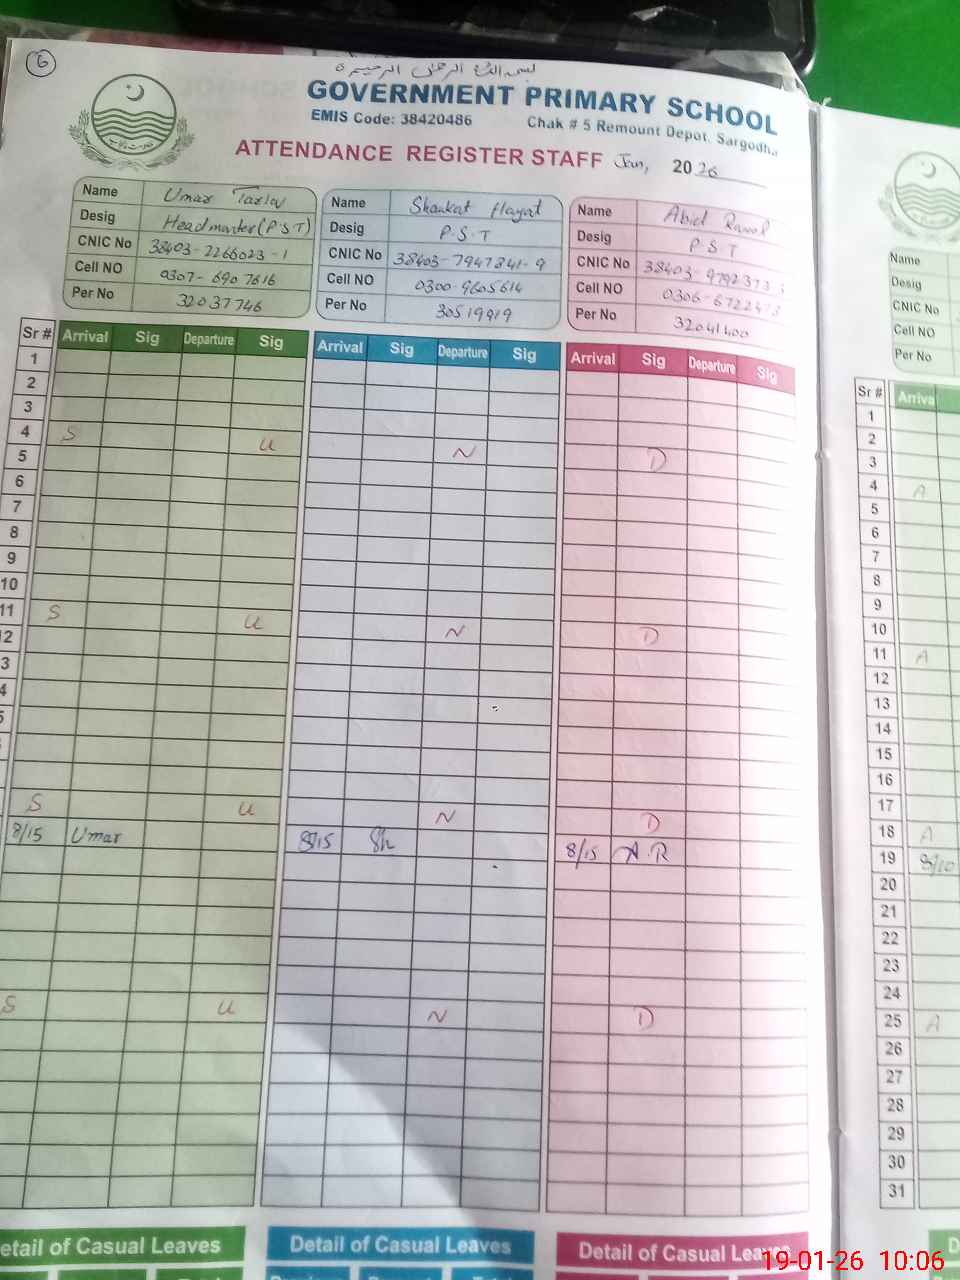 6
بسم اللہ الرحمن الرحیم
GOVERNMENT PRIMARY SCHOOL
EMIS Code: 38420486 Chak # 5 Remount Depot, Sargodha
ATTENDANCE REGISTER STAFF Jan, 2026
Name Umar
Desig Headmaster (P.S.T)
CNIC No 38403-2266023-1
Cell NO 0307-6907616
Per No 32037746
Name Shaukat Hayat
Desig P.S.T
CNIC No 38403-7947841-9
Cell NO 0300-9605614
Per No 30519919
Name Abid
Desig P.S.T
CNIC No
Cell NO
Per No 32041400
Name
Desig
CNIC No
Cell NO
Per No
Sr # Arrival Sig Departure Sig Arrival Sig Departure Sig Arrival Sig Departure Sig
1
2
3
4 S U N D
5
6
7
8
9
10
11 S U N D
2
3
4
5
S U N D
8/15 Umar 8/15 Sh 8/15 A.R
S U N D
Sr # Arriva
1
2
3
4 A
5
6
7
8
9
10
11 A
12
13
14
15
16
17
18 A
19 8/10
20
21
22
23
24
25 A
26
27
28
29
30
31
etail of Casual Leaves Detail of Casual Leaves Detail of Casual Leaves D
19-01-26 10:06